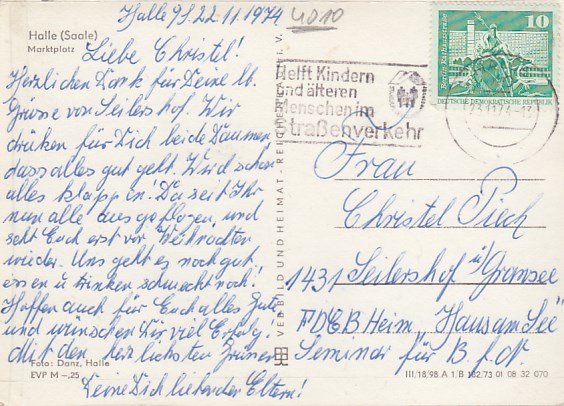 Halle 9J. 22.11.1974
4010
Halle (Saale)
Marktplatz
Liebe Christel!
Herzlichen Dank für Deine lb.
Grüsse von Seilershof. Wir
drücken für Dich beide Daumen
dass alles gut geht. Wird schon
alles klappen. Da seit Ihr
nun alle ausgeflogen, und
seht Euch erst vor Weihnachten
wieder. Uns geht es noch gut,
essen u trinken schmeckt noch!
Hoffen auch für Euch alles Gute
und wünschen Dir viel Erfolg.
Mit den herzlichsten Grüssen
Foto: Danz, Halle
EVP M –,25
Deine Dich liebenden Eltern!
VEB BILD UND HEIMAT · REICHENBACH I. V.
Helft Kindern
und älteren
Menschen im
Straßenverkehr
10
Berlin, Rathausstraße
DEUTSCHE DEMOKRATISCHE REPUBLIK
23.11.74-13
Frau
Christel Piech
1431 Seilershof ü/Gransee
FDGB Heim „Haus am See"
Seminar für B. f. N.
III/18/98 A 1/B 182/73 01 08 32 070